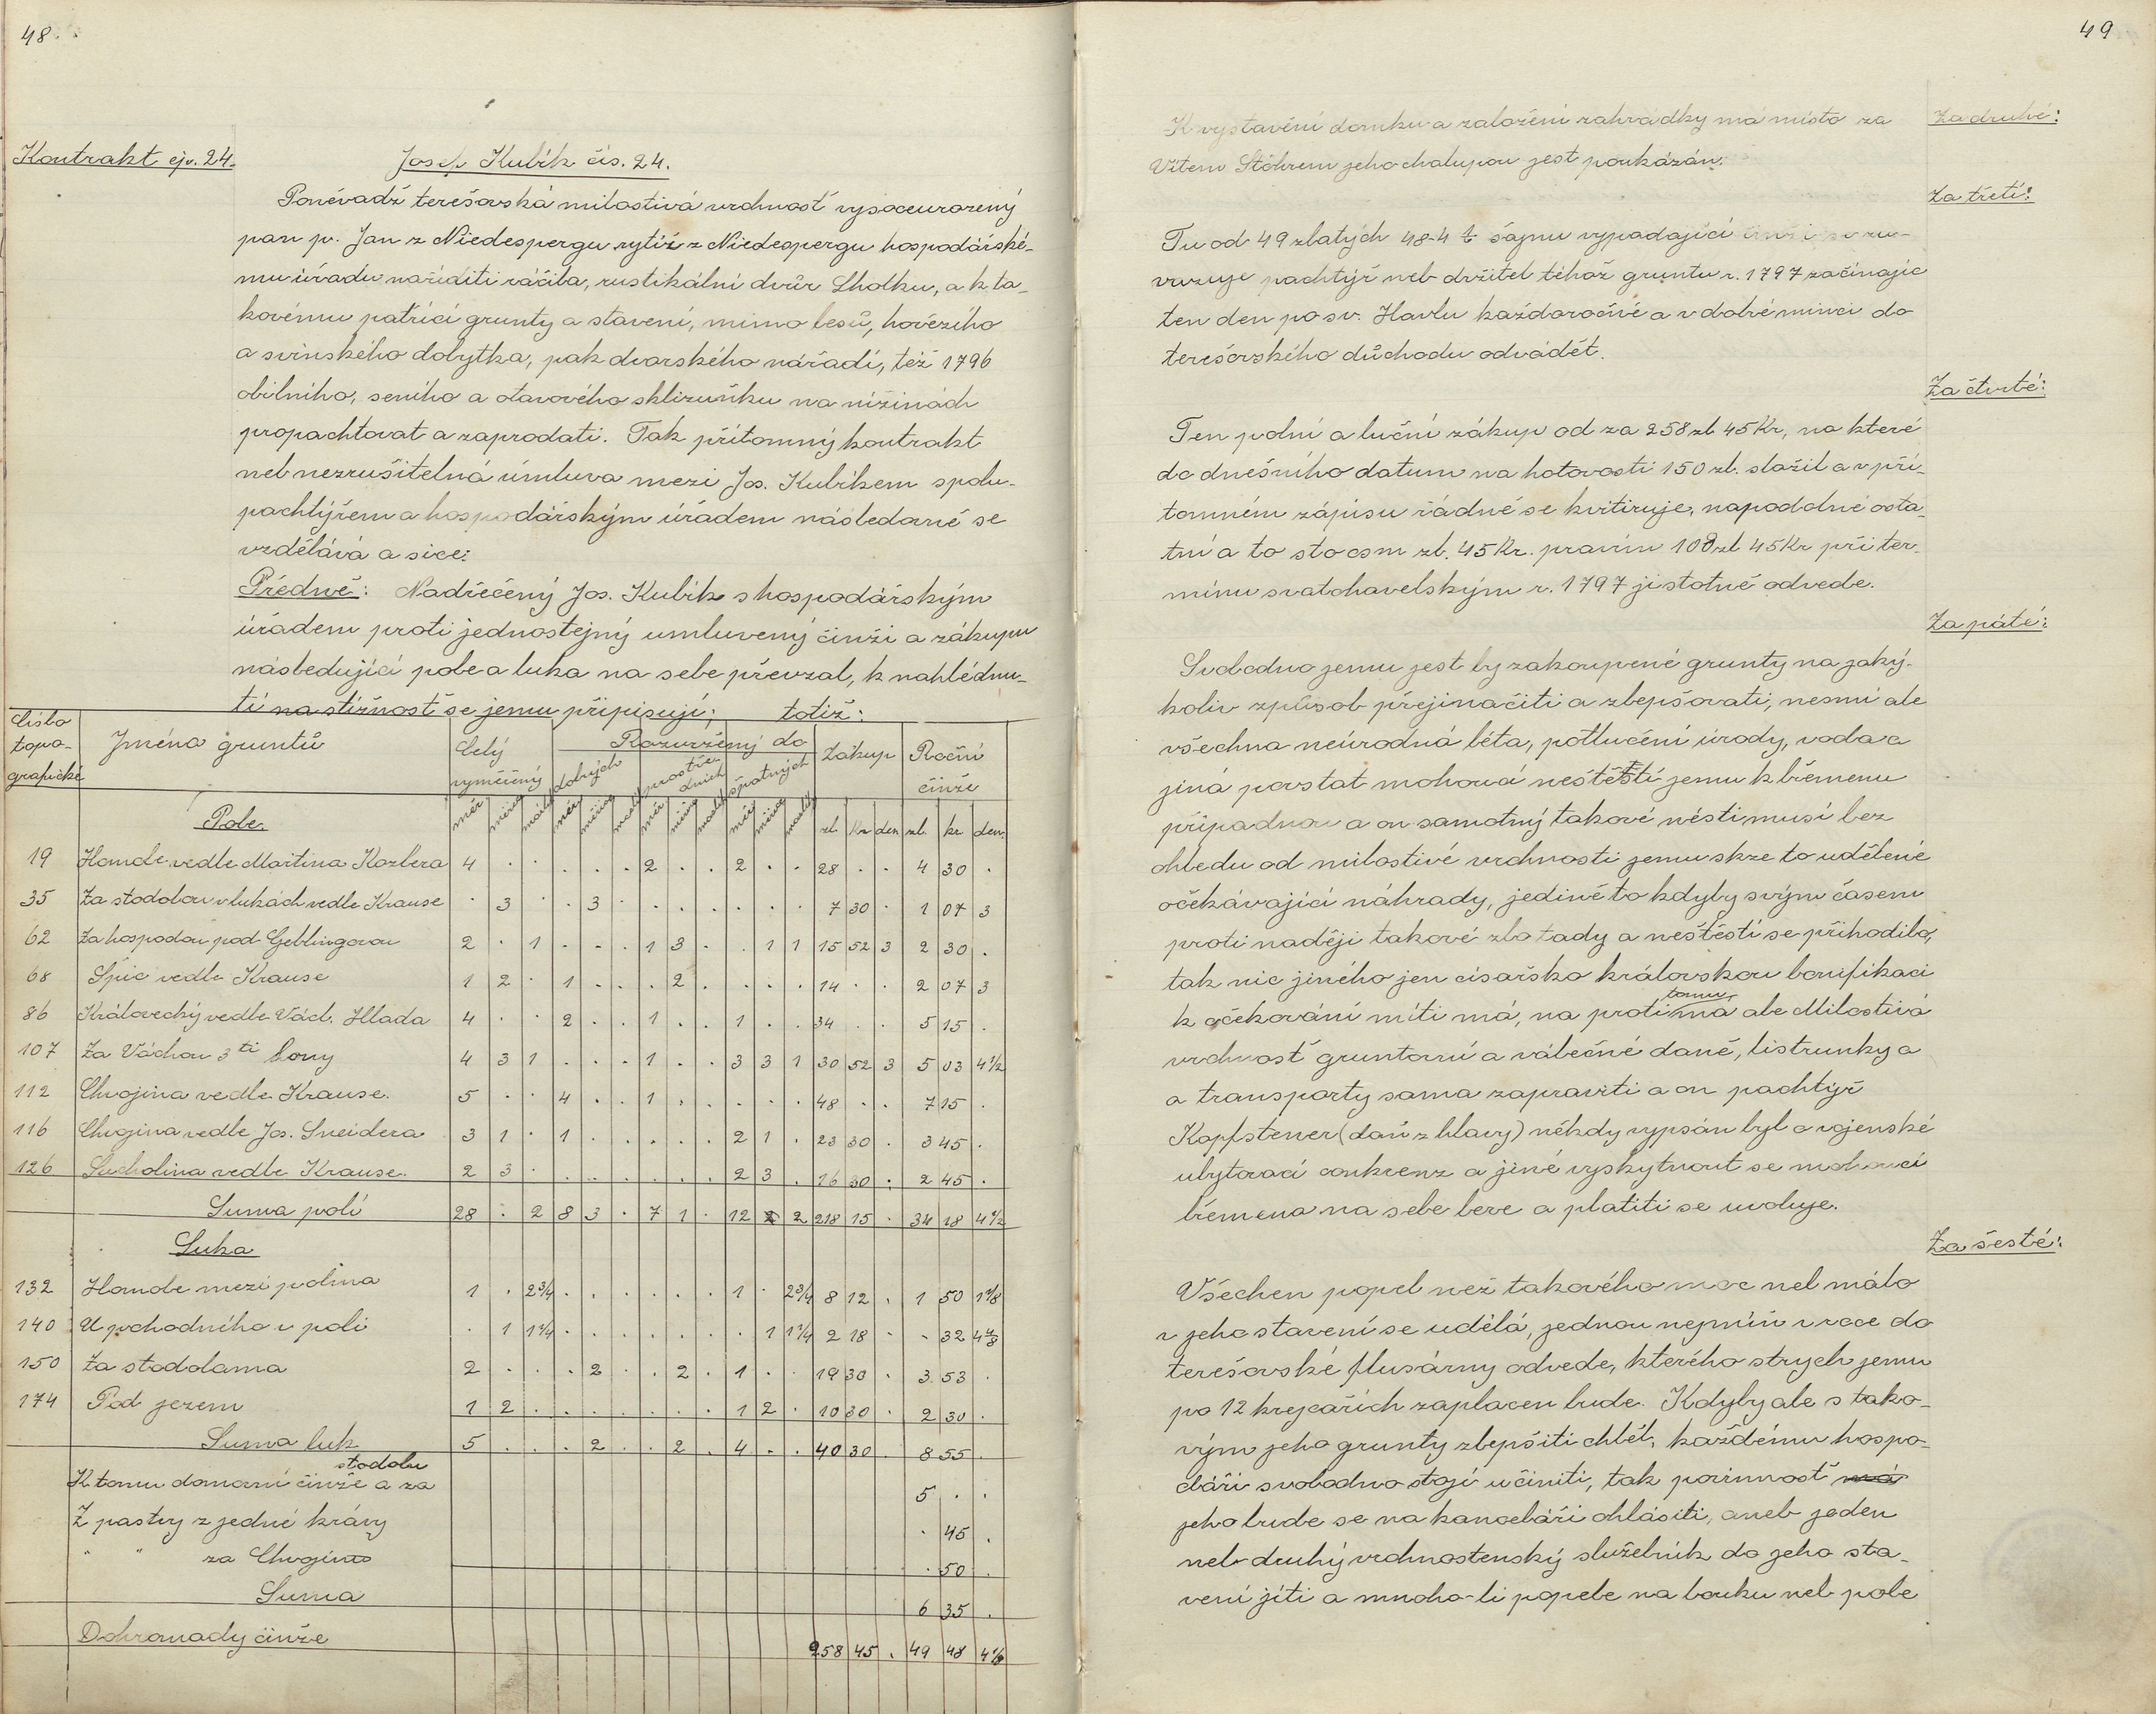 48.
Kontrakt čp. 24.
Josef Kubík čís. 24.
Poněvadž terešovská milostivá vrchnosť vysoceurozený
pan p. Jan z Niedespergu rytíř z Niedespergu hospodářské-
mu úřadu naříditi ráčila, rustikální dvůr Lhotku, a k ta-
kovému patřící grunty a stavení, mimo lesů, hovězího
a svinského dobytka, pak dvorského nářadí, též 1796
obilního, seního a otavového sklizuňku na nížinách
propachtovat a zaprodati. Tak přítomný kontrakt
neb nezrušitelná úmluva mezi Jos. Kubíkem spolu-
pachtýřem a hospodářským úřadem následovně se
vzdělává a sice:
Předně: Nadřečený Jos. Kubík s hospodářským
úřadem proti jednostejný umluvený činži a zákupu
následující pole a luka na sebe převzal, k nahlédnu-
tí na stížnost se jemu připisují; totiž:
Číslo topo- grafické | Jména gruntů | Celý vyměřený | Rozvržený do | dobrých | prostředních | špatných | Zákup | Roční činže
Pole. | měr | měřice | maslí | měr | měřice | maslí | měr | měřice | maslí | měr | měřice | maslí | zl. | Kr | den | zl. | kr | den.
19 Homole vedle Martina Kozlera 4 . . . . . 2 . . 2 . . 28 . . 4 30 .
35 Za stodolou v lukách vedle Krause . 3 . . 3 . . . . . . . 7 30 . 1 07 3
62 Za hospodou pod Geblingovou 2 . 1 . . . 1 3 . . 1 1 15 52 3 2 30 .
68 Špic vedle Krause 1 2 . 1 . . . 2 . . . . 14 . . 2 07 3
86 Královecký vedle Václ. Hlada 4 . . 2 . . 1 . . 1 . . 34 . . 5 15 .
107 Za Váchou 3ti hony 4 3 1 . . . 1 . . 3 3 1 30 52 3 5 03 4½
112 Chvojina vedle Krause. 5 . . 4 . . 1 . . . . . 48 . . 7 15 .
116 Chvojina vedle Jos. Šneidera 3 1 . 1 . . . . . 2 1 . 23 30 . 3 45 .
126 Sucholina vedle Krause. 2 3 . . . . . . . 2 3 . 16 30 . 2 45 .
Suma polí 28 . 2 8 3 . 7 1 . 12 2 2 218 15 . 34 18 4½
Luka
132 Homole mezi polma 1 . 2¾ . . . . . . 1 . 2¾ 8 12 . 1 50 1⅛
140 U pochodního v poli . 1 1¼ . . . . . . . 1 1¼ 2 18 . . 32 4
150 Za stodolama 2 . . . 2 . . 2 . 1 . . 19 30 . 3 53 .
174 Pod jezem 1 2 . . . . . . . 1 2 . 10 30 . 2 30 .
Suma luk 5 . . . 2 . . 2 . 4 . . 40 30 . 8 55 .
stodolu
K tomu domovní činže a za 5 . .
Z pastvy z jedné krávy . 45 .
" " za Chvojinu . 50 .
Suma 6 35 .
Dohromady činže 258 45 . 49 48 4½
49
K vystavění domku a založení zahrádky má místo za
Za druhé:
Vítem Stöhrem jeho chalupou jest poukázán.
Za třetí:
Tu od 49 zlatých 48-4 ½ šajnu vypadající činži se zu-
vazuje pachtýř neb držitel téhož gruntu r. 1797 začínajíc
ten den po sv. Havlu každoročně a v dobré minci do
terešovského důchodu odvádět.
Za čtvrté:
Ten polní a luční zákup od za 258 zl 45 Kr, na které
do dnešního datum na hotovosti 150 zl. složil a v pří-
tomném zápisu řádně se kvitiruje, napodobně osta-
tní a to sto osm zl. 45 Kr. pravím 108 zl 45 Kr při ter-
mínu svatohavelským r. 1797 jistotně odvede.
Za páté:
Svobodno jemu jest by zakoupené grunty na jaký-
koliv způsob přejinačiti a zlepšovati, nesmí ale
všechna neúrodná léta, potlučení úrody, voda a
jiná povstat mohoucí neštěstí jemu k břemenu
připadnou a on samotný takové nésti musí bez
ohledu od milostivé vrchnosti jemu skze to udělené
očekávající náhrady, jedině to kdyby svým časem
proti naději takové zlo tady a neštěstí se přihodilo,
tak nic jiného jen císařsko královskou bonifikaci
tomu
k očekování míti má, na proti ma ale Milostivá
vrchnosť gruntovní a válečné daně, listrunky a
a transporty sama zapraviti a on pachtýř
Kopfstener (daň z hlavy) někdy vypsán byl a vojenské
ubytovací conkrenz a jiné vyskytnout se mohoucí
břemena na sebe bere a platiti se uvoluje.
Za šesté:
Všechen popel než takového moc neb málo
v jeho stavení se udělá, jednou nejmíň v roce do
terešovské flusárny odvede, kterého strych jemu
po 12 krejcařích zaplacen bude. Kdyby ale s tako-
vým jeho grunty zlepšiti chtěl, každému hospo-
dáři svobodno stojí učiniti, tak povinnosť má
jeho bude se na kanceláři ohlásiti, aneb jeden
neb druhý vrchnostenský služebník do jeho sta-
vení jíti a mnoho-li popele na louku neb pole